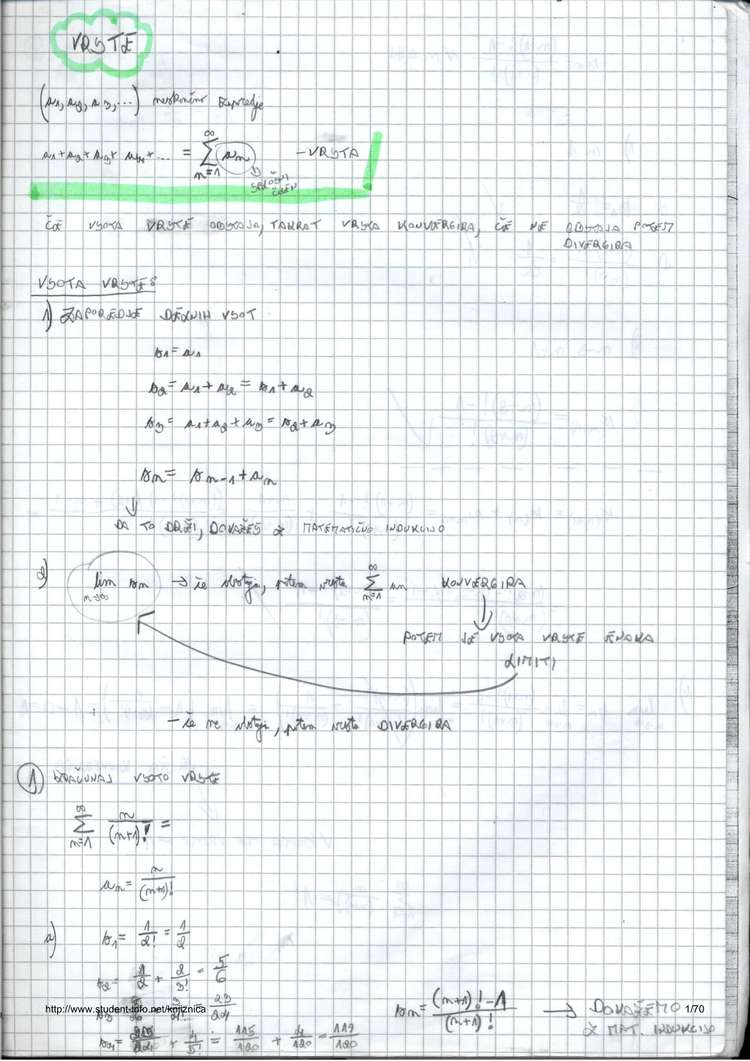 VRSTE
(a1, a2, a3, ...) neskončno zaporedje
a1 + a2 + a3 + a4 + ... = ∞ ∑ n=1 an - VRSTA
SPLOŠNI ČLEN
ČE VSOTA VRSTE OBSTAJA, TAKRAT VRSTA KONVERGIRA, ČE NE OBSTAJA POTEM
DIVERGIRA
VSOTA VRSTE:
1) ZAPOREDJE DELNIH VSOT
s1 = a1
s2 = a1 + a2 = s1 + a2
s3 = a1 + a2 + a3 = s2 + a3
sn = sn-1 + an
DA TO DRŽI, DOKAŽEŠ Z MATEMATIČNO INDUKCIJO
2) lim n→∞ sn → če obstaja, potem vrsta ∞ ∑ n=1 an KONVERGIRA
POTEM JE VSOTA VRSTE ENAKA
LIMITI
- če ne obstaja, potem vrsta DIVERGIRA
1 IZRAČUNAJ VSOTO VRSTE
∞ ∑ n=1 n/(n+1)! =
an = n/(n+1)!
a) s1 = 1/2! = 1/2
s2 = 1/2 + 2/3! = 5/6
http://www.student-info.net/knjiznica
s3 = 23/24
sn = ((n+1)! - 1)/(n+1)! → DOKAŽEMO
1/70
s4 = + 4/5! = 115/120 + 4/120 = 119/120
Z MAT. INDUKCIJO